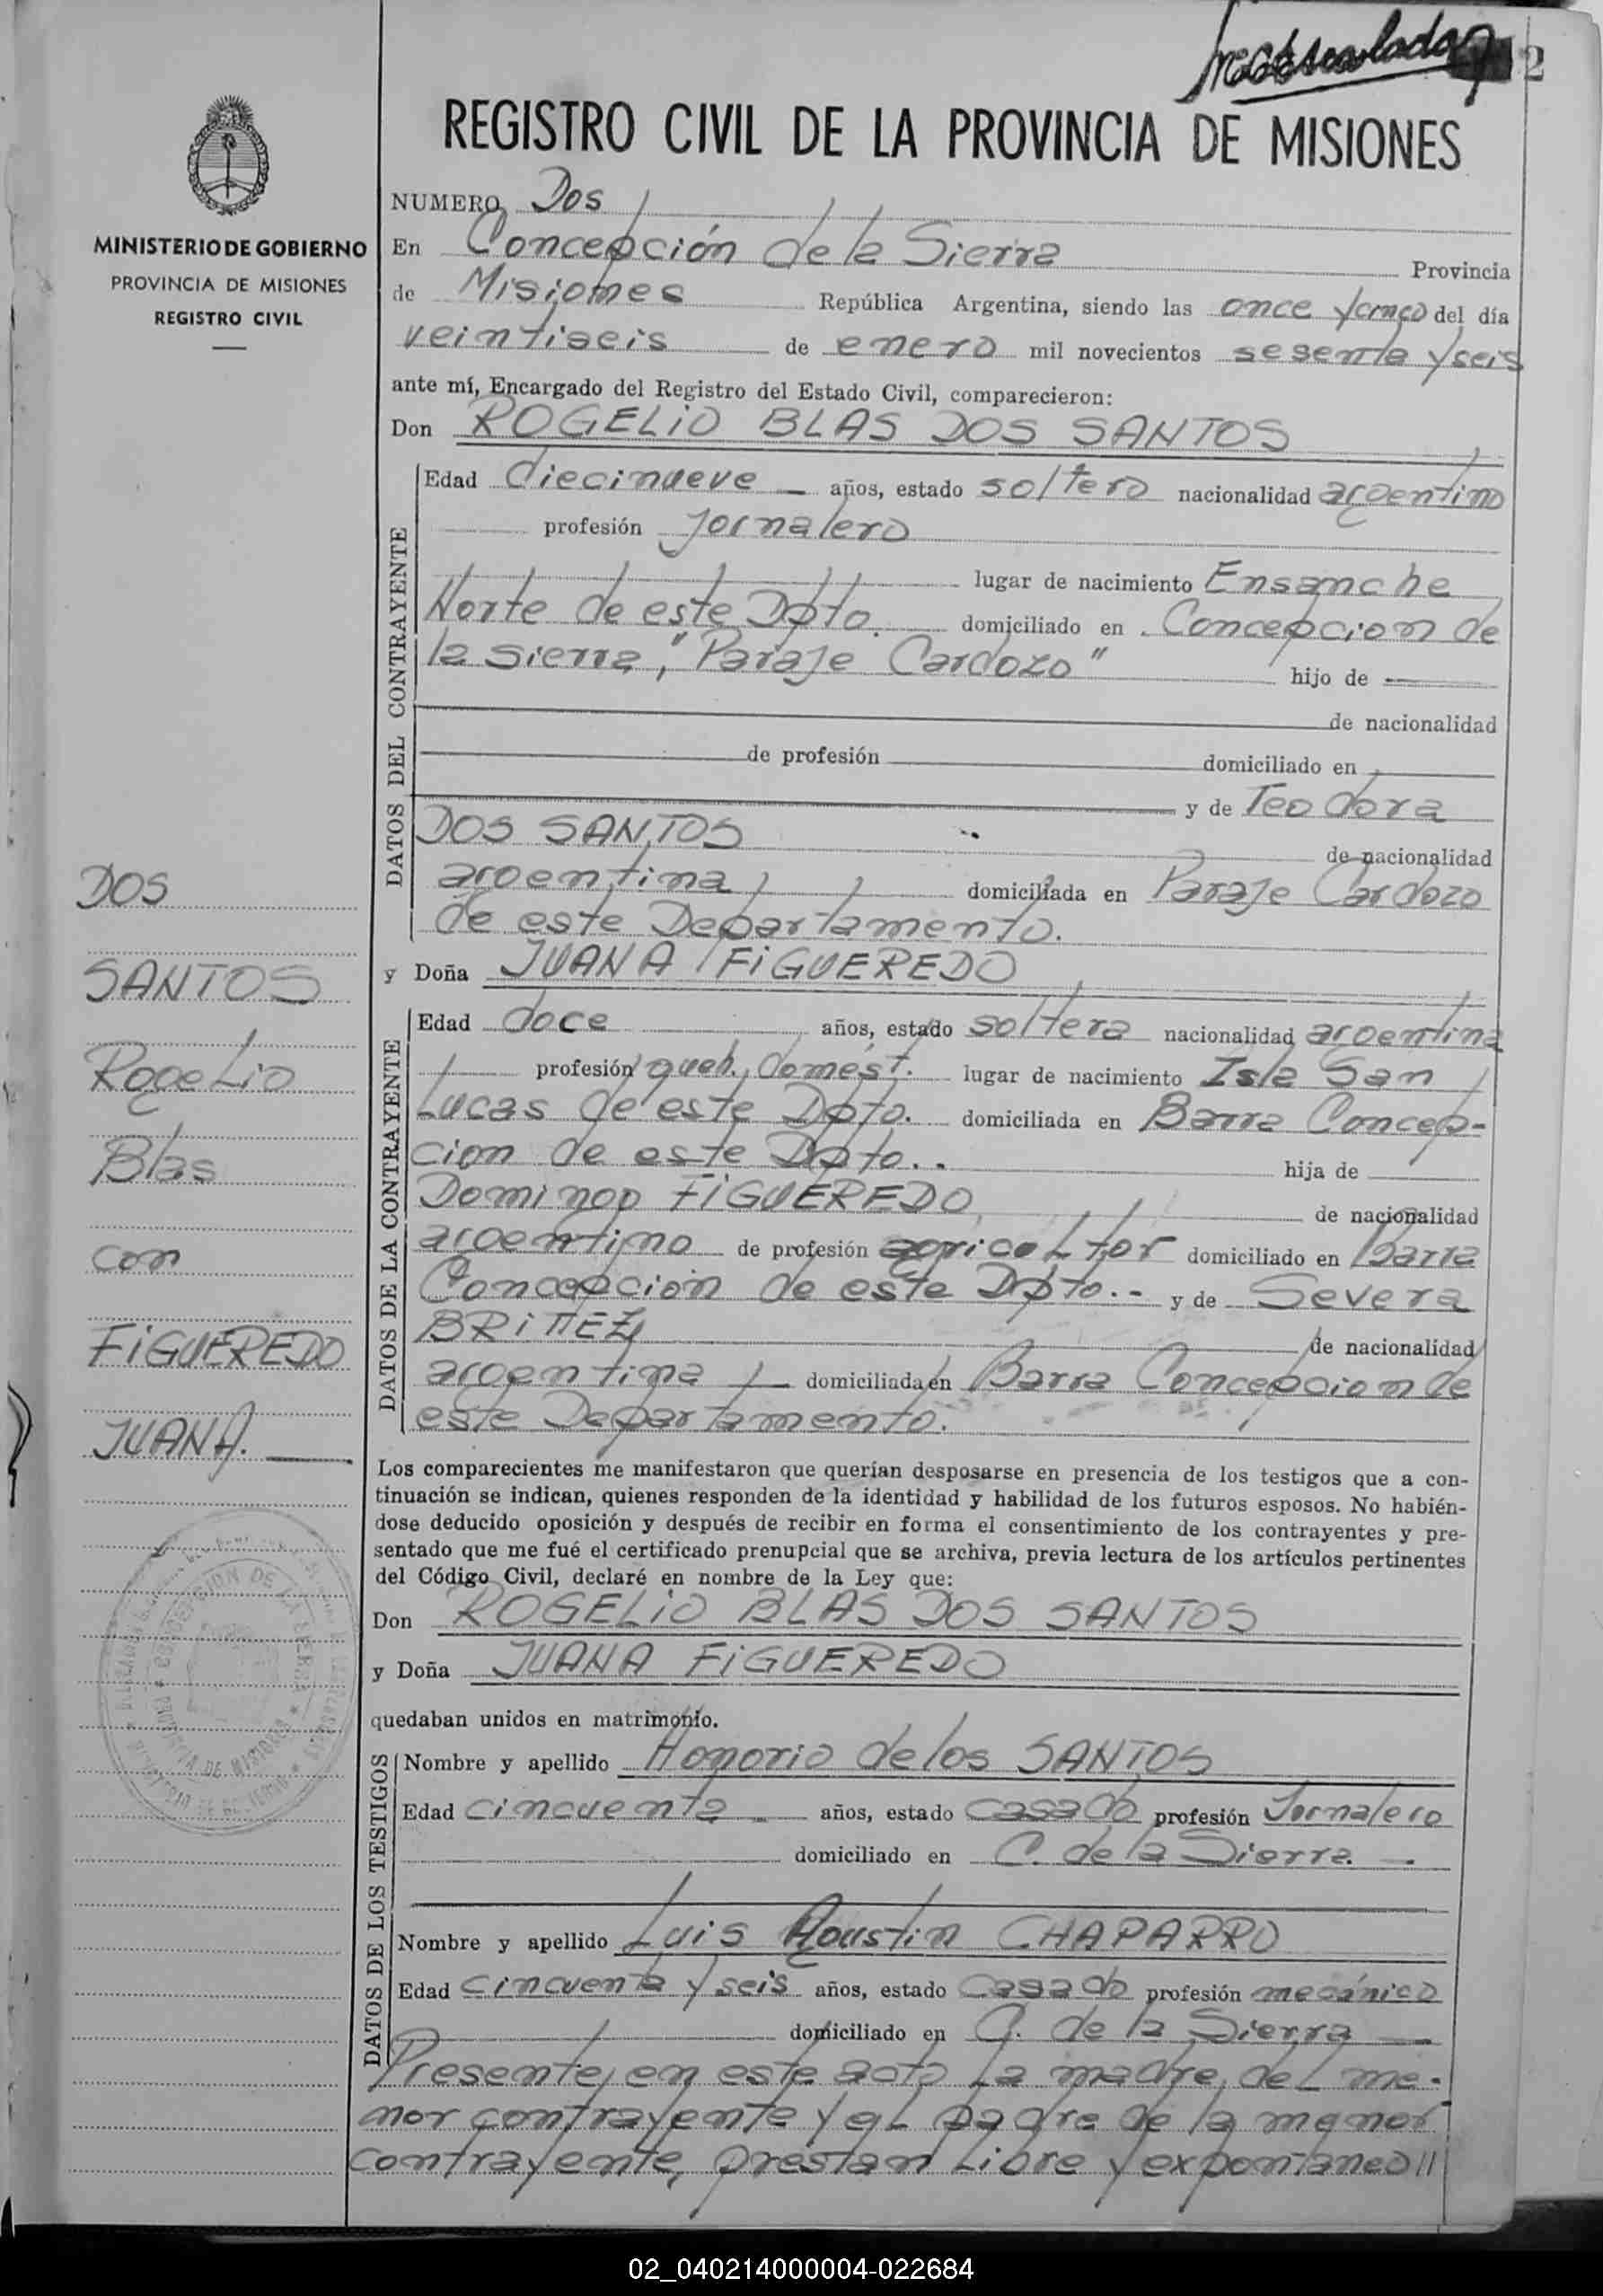 2
REGISTRO CIVIL DE LA PROVINCIA DE MISIONES
MINISTERIO DE GOBIERNO
PROVINCIA DE MISIONES
REGISTRO CIVIL
NUMERO Dos
En Concepción de la Sierra Provincia
de Misiones República Argentina, siendo las once y cinco del día
veintiseis de enero mil novecientos sesenta y seis
ante mí, Encargado del Registro del Estado Civil, comparecieron:
Don ROGELIO BLAS DOS SANTOS
DATOS DEL CONTRAYENTE
Edad diecinueve años, estado soltero nacionalidad argentino
profesión Jornalero
lugar de nacimiento Ensanche
Norte de este Dpto. domiciliado en Concepcion de
la Sierra, "Paraje Cardozo" hijo de
de nacionalidad
de profesión domiciliado en
y de Teodora
DOS SANTOS de nacionalidad
argentina domiciliada en Paraje Cardozo
de este Departamento.
y Doña JUANA FIGUEREDO
DATOS DE LA CONTRAYENTE
Edad doce años, estado soltera nacionalidad argentina
profesión queh. domést. lugar de nacimiento Isla San
Lucas de este Dpto. domiciliada en Barra Concep-
cion de este Dpto.. hija de
Domingo FIGUEREDO de nacionalidad
argentino de profesión agricoltor domiciliado en Barra
Concepcion de este Dpto.- y de Severa
BRITTEZ de nacionalidad
argentina domiciliada en Barra Concepcion de
este Departamento.
DOS
SANTOS
Rogelio
Blas
con
FIGUEREDO
JUANA.
Los comparecientes me manifestaron que querían desposarse en presencia de los testigos que a con-
tinuación se indican, quienes responden de la identidad y habilidad de los futuros esposos. No habién-
dose deducido oposición y después de recibir en forma el consentimiento de los contrayentes y pre-
sentado que me fué el certificado prenupcial que se archiva, previa lectura de los artículos pertinentes
del Código Civil, declaré en nombre de la Ley que:
Don ROGELIO BLAS DOS SANTOS
y Doña JUANA FIGUEREDO
quedaban unidos en matrimonio.
DATOS DE LOS TESTIGOS
Nombre y apellido Honorio de los SANTOS
Edad cincuenta años, estado casado profesión Jornalero
domiciliado en C. de la Sierra.-
Nombre y apellido Luis Agustin CHAPARRO
Edad cincuenta y seis años, estado casado profesión mecánico
domiciliado en C. de la Sierra
Presente en este acto la madre del me-
nor contrayente y el padre de la menor
contrayente, prestan libre y expontaneo//
02_040214000004-022684